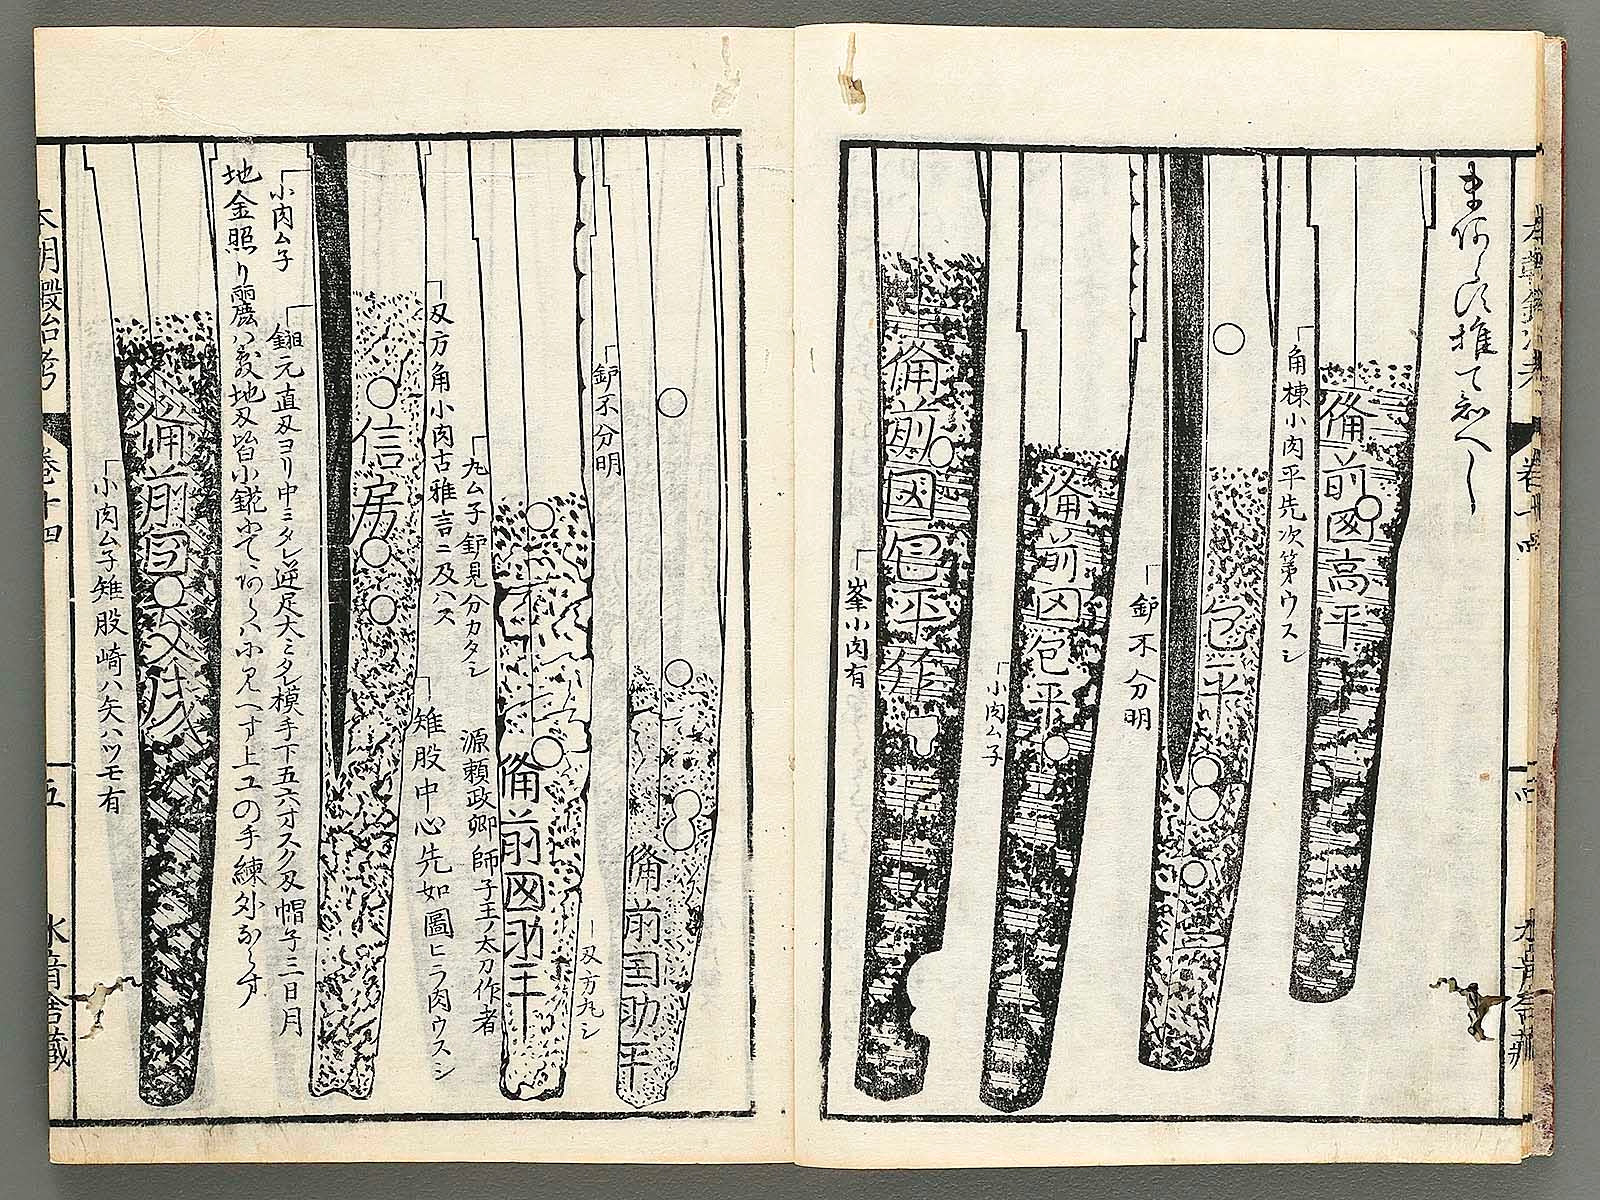 推て知へし
備前國高平
角棟小肉平先次第ウスシ
包平
鈩不分明
備前国包平
小肉ム子
備前國包平作
峯小肉有
鈩不分明
備前国助平
刄方丸シ
備前國助平
九ム子鈩見分カタシ
源頼政卿師子王ノ太刀作者
刄方角小肉古雅言ニ及ハス
雉股中心先如圖ヒラ肉ウスシ
信房
小肉ム子
鉏元直刄ヨリ中ミタレ逆足大ミタレ模手下五六寸スク刄帽子三日月
地金照り麗ハ敷地刄皆小錵
上工の手練外ならす
備前国友成
小肉ム子雉股崎ハ矢ハツモ有
本朝鍛冶考
卷十四
五
水音舎蔵